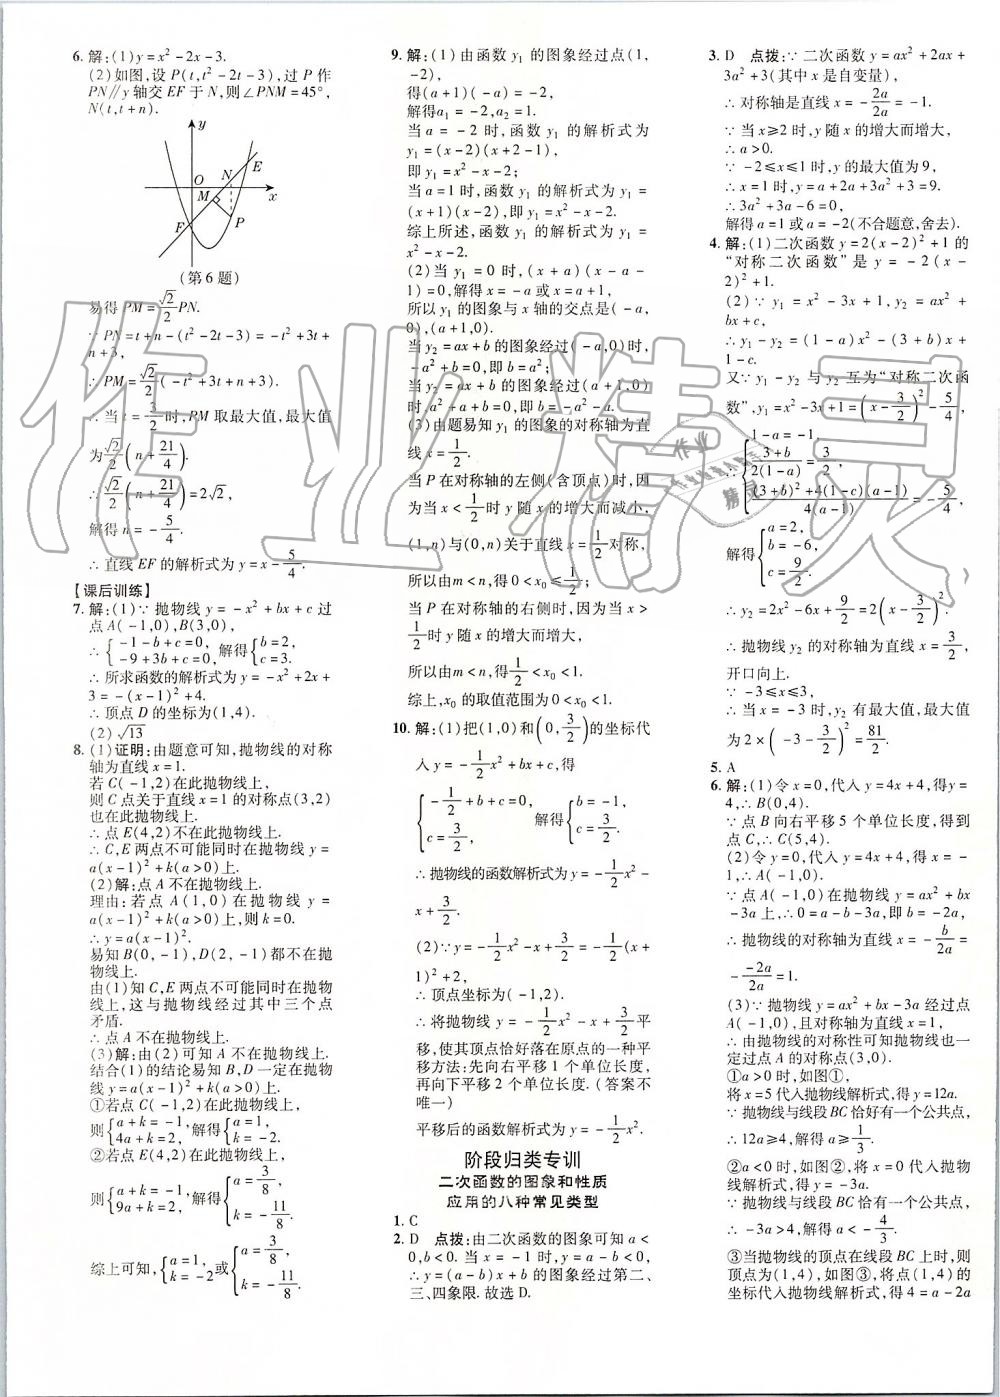 6. 解:(1)y=x²-2x-3.
(2)如图,设 P(t,t²-2t-3),过 P 作
PN∥y轴交 EF 于 N,则∠PNM=45°,
N(t,t+n).
y
O
N
E
M
x
F
P
(第6题)
易得 PM=√2/2 PN.
∵ PN=t+n-(t²-2t-3)=-t²+3t+
n+3,
∴ PM=√2/2(-t²+3t+n+3).
∴ 当 t=3/2 时,PM 取最大值,最大值
为 √2/2(n+21/4).
∴ √2/2(n+21/4)=2√2,
解得 n=-5/4.
∴ 直线 EF 的解析式为 y=x-5/4.
【课后训练】
7. 解:(1)∵ 抛物线 y=-x²+bx+c 过
点 A(-1,0),B(3,0),
∴ {-1-b+c=0, -9+3b+c=0, 解得 {b=2, c=3.
∴ 所求函数的解析式为 y=-x²+2x+
3=-(x-1)²+4.
∴ 顶点 D 的坐标为(1,4).
(2) √13
8. (1)证明:由题意可知,抛物线的对称
轴为直线 x=1.
若 C(-1,2)在此抛物线上,
则 C 点关于直线 x=1 的对称点(3,2)
也在此抛物线上.
∴ 点 E(4,2)不在此抛物线上.
∴ C,E 两点不可能同时在抛物线 y=
a(x-1)²+k(a>0)上.
(2)解:点 A 不在抛物线上.
理由:若点 A(1,0)在抛物线 y=
a(x-1)²+k(a>0)上,则 k=0.
∴ y=a(x-1)².
易知 B(0,-1),D(2,-1)都不在抛
物线上.
由(1)知 C,E 两点不可能同时在抛物
线上,这与抛物线经过其中三个点
矛盾.
∴ 点 A 不在抛物线上.
(3)解:由(2)可知 A 不在抛物线上.
结合(1)的结论易知 B,D 一定在抛物
线 y=a(x-1)²+k(a>0)上.
①若点 C(-1,2)在此抛物线上,
则 {a+k=-1, 4a+k=2, 解得 {a=1, k=-2.
②若点 E(4,2)在此抛物线上,
则 {a+k=-1, 9a+k=2, 解得 {a=3/8, k=-11/8.
综上可知, {a=1, k=-2 或 {a=3/8, k=-11/8.
9. 解:(1)由函数 y₁ 的图象经过点(1,
-2),
得(a+1)(-a)=-2,
解得a₁=-2,a₂=1.
当 a=-2 时,函数 y₁ 的解析式为
y₁=(x-2)(x+2-1),
即 y₁=x²-x-2;
当 a=1 时,函数 y₁ 的解析式为 y₁=
(x+1)(x-2),即 y₁=x²-x-2.
综上所述,函数 y₁ 的解析式为 y₁=
x²-x-2.
(2)当 y₁=0 时,(x+a)(x-a-
1)=0,解得 x=-a 或 x=a+1,
所以 y₁ 的图象与 x 轴的交点是(-a,
0),(a+1,0).
当 y₂=ax+b 的图象经过(-a,0)时,
-a²+b=0,即 b=a²;
当 y₂=ax+b 的图象经过(a+1,0)
时,a²+a+b=0,即 b=-a²-a.
(3)由题易知 y₁ 的图象的对称轴为直
线 x=1/2.
当 P 在对称轴的左侧(含顶点)时,因
为当 x<1/2 时 y 随 x 的增大而减小,
(1,n)与(0,n)关于直线 x=1/2 对称,
所以由 m<n,得 0<x₀≤1/2;
当 P 在对称轴的右侧时,因为当 x>
1/2 时 y 随 x 的增大而增大,
所以由 m<n,得 1/2<x₀<1.
综上,x₀ 的取值范围为 0<x₀<1.
10. 解:(1)把(1,0)和(0,3/2)的坐标代
入 y=-1/2x²+bx+c,得
{-1/2+b+c=0, c=3/2, 解得 {b=-1, c=3/2.
∴ 抛物线的函数解析式为 y=-1/2x²-
x+3/2.
(2)∵ y=-1/2x²-x+3/2=-1/2(x+
1)²+2,
∴ 顶点坐标为(-1,2).
∴ 将抛物线 y=-1/2x²-x+3/2 平
移,使其顶点恰好落在原点的一种平
移方法:先向右平移 1 个单位长度,
再向下平移 2 个单位长度. (答案不
唯一)
平移后的函数解析式为 y=-1/2x².
阶段归类专训
二次函数的图象和性质
应用的八种常见类型
1. C
2. D 点拨:由二次函数的图象可知 a<
0,b<0. 当 x=-1 时,y=a-b<0.
∴ y=(a-b)x+b 的图象经过第二、
三、四象限. 故选 D.
3. D 点拨:∵ 二次函数 y=ax²+2ax+
3a²+3(其中 x 是自变量),
∴ 对称轴是直线 x=-2a/2a=-1.
∵ 当 x≥2 时,y 随 x 的增大而增大,
∴ a>0.
∵ -2≤x≤1 时,y 的最大值为 9,
∴ x=1 时,y=a+2a+3a²+3=9.
∴ 3a²+3a-6=0,
解得 a=1 或 a=-2(不合题意,舍去).
4. 解:(1)二次函数 y=2(x-2)²+1 的
“对称二次函数”是 y=-2(x-
2)²+1.
(2)∵ y₁=x²-3x+1,y₂=ax²+
bx+c,
∴ y₁-y₂=(1-a)x²-(3+b)x+
1-c.
又∵ y₁-y₂ 与 y₁ 互为“对称二次函
数”,y₁=x²-3x+1=(x-3/2)²-5/4,
∴ {1-a=-1, (3+b)/2(1-a)=3/2, ((3+b)²+4(1-c)(a-1))/4(a-1)=-5/4,
解得 {a=2, b=-6, c=9/2.
∴ y₂=2x²-6x+9/2=2(x-3/2)².
∴ 抛物线 y₂ 的对称轴为直线 x=3/2,
开口向上.
∵ -3≤x≤3,
∴ 当 x=-3 时,y₂ 有最大值,最大值
为 2×(-3-3/2)²=81/2.
5. A
6. 解:(1)令 x=0,代入 y=4x+4,得y=
4,∴ B(0,4).
∵ 点 B 向右平移 5 个单位长度,得到
点 C,∴ C(5,4).
(2)令 y=0,代入 y=4x+4,得 x=-
1,∴ A(-1,0).
∵ 点 A(-1,0)在抛物线 y=ax²+bx
-3a 上,∴ 0=a-b-3a,即 b=-2a,
∴ 抛物线的对称轴为直线 x=-b/2a=
--2a/2a=1.
(3)∵ 抛物线 y=ax²+bx-3a 经过点
A(-1,0),且对称轴为直线 x=1,
∴ 由抛物线的对称性可知抛物线也一
定过点 A 的对称点(3,0).
①a>0 时,如图①,
将 x=5 代入抛物线解析式,得 y=12a.
∵ 抛物线与线段 BC 恰好有一个公共点,
∴ 12a≥4,解得 a≥1/3.
②a<0 时,如图②,将 x=0 代入抛物
线解析式,得 y=-3a.
∵ 抛物线与线段 BC 恰有一个公共点,
∴ -3a>4,解得 a<-4/3.
③当抛物线的顶点在线段 BC 上时,则
顶点为(1,4),如图③,将点(1,4)的
坐标代入抛物线解析式,得 4=a-2a
作业精灵